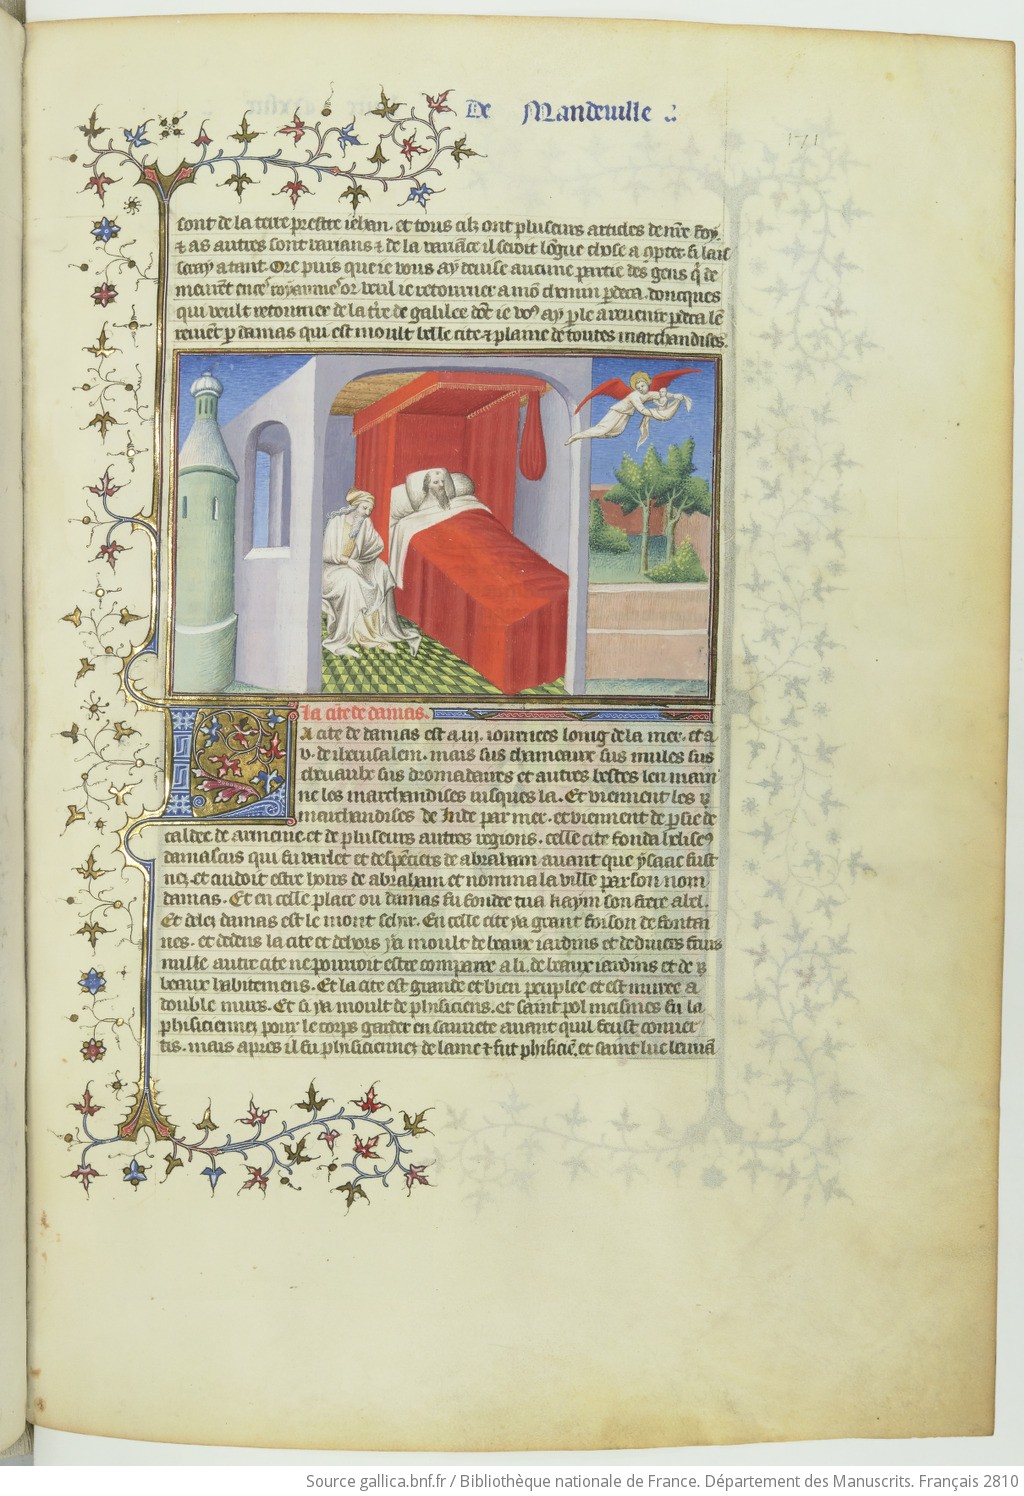 De Mandeville
171
sont de la terre prestre iehan. et tous cilz ont pluseurs articles de nre foy.
⁊ as autres sont varians ⁊ de la variance il seroit longue chose a 9pter. si lais
seray a tant. Ore puis que ie vous ay deuise aucune partie des gens q̃ de
meurent en ces royaumes or veul ie retourner a mõ chemin p deca. doncques
qui veult retourner de la tr̃e de galilee dõt ie voꝰ ay ple a reuenir p deca len
reuient p damas qui est moult belle cite ⁊ plaine de toutes marchandises.
La cite de damas.
La cite de damas est a .iii. iournees loing de la mer. et a
.v. de iherusalem. mais sus chameaux sus mules sus
cheuaulx sus dromadaires et autres bestes len main
ne les marchandises iusques la. Et viennent les
marchandises de Inde par mer. et viennent de pse de
caldee de armenie. et de pluseurs autres regions. celle cite fonda heliseꝰ
damascus qui fu varlet et despensiers de abraham auant que ysaac fust
nez. et cuidoit estre hoirs de abraham et nomma la ville par son nom
damas. Et en celle place ou damas fu fondee tua kaym son frere abel.
Et delez damas est le mont seyr. En celle cite ya grant foison de fontai
nes. et dedens la cite et dehors ya moult de beaux iardins et de diuers fruis
nulle autre cite ne pourroit estre comparee a li. de beaux iardins et de
beaux habitemens. Et la cite est grande et bien peuplee et est muree a
double murs. Et si ya moult de phisiciens. et saint pol meismes fu la
phisiciennez pour le corps garder en sancte auant quil feust conuer
tis. mais apres il fu phisiciennez de lame ⁊ fut phisiciẽ. et saint luc leuuã
Source gallica.bnf.fr / Bibliothèque nationale de France. Département des Manuscrits. Français 2810